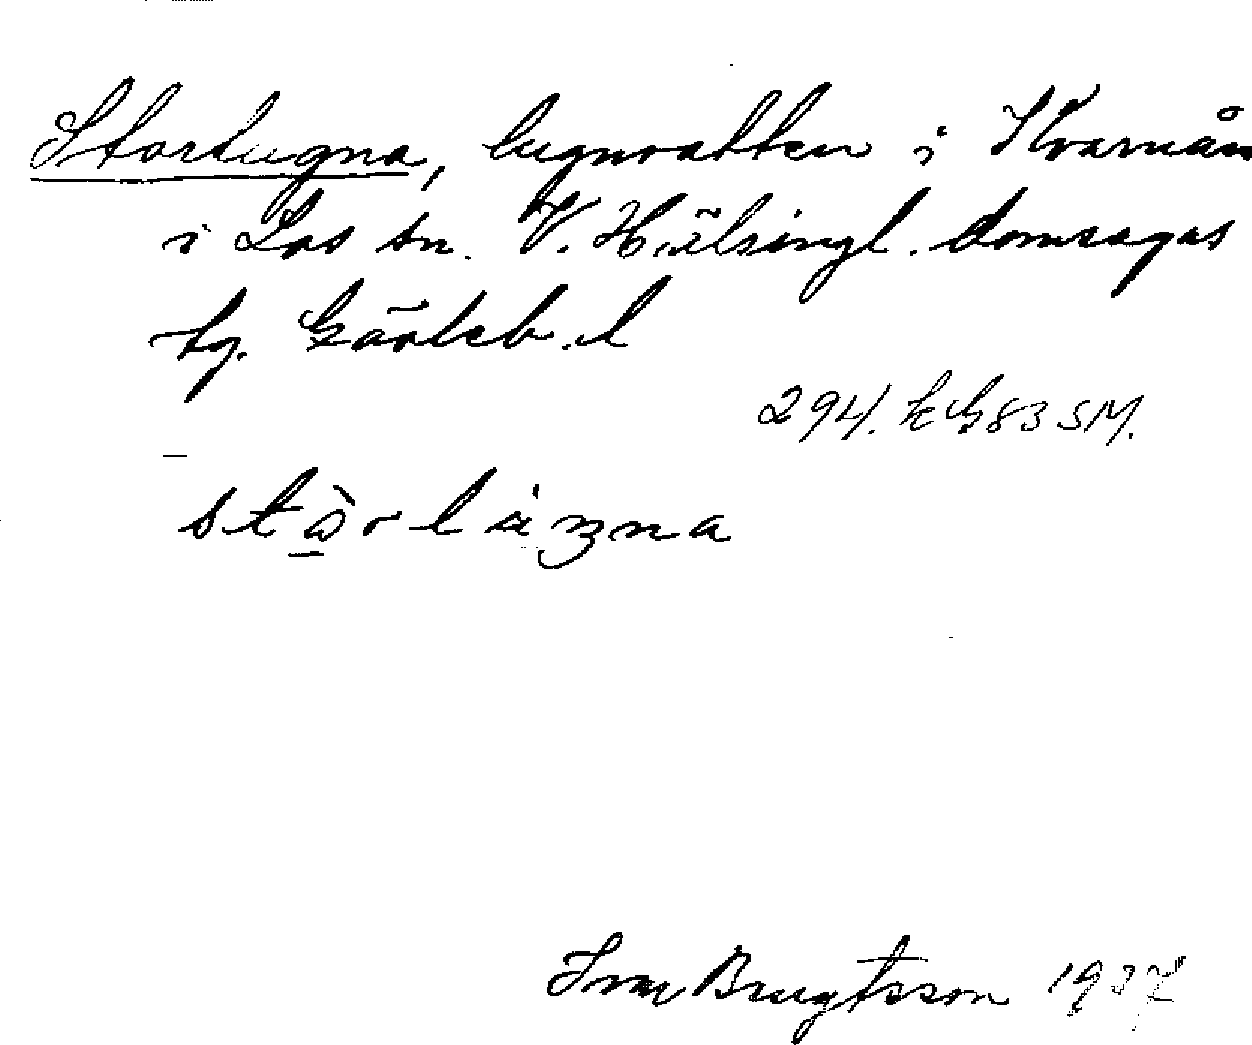 Storlugna, lugnvatten i Kvarnån
i Los sn. V. Hälsingl. domsagas
tg. Gävleb. l
294. 83 SM.
Bengtsson 1937